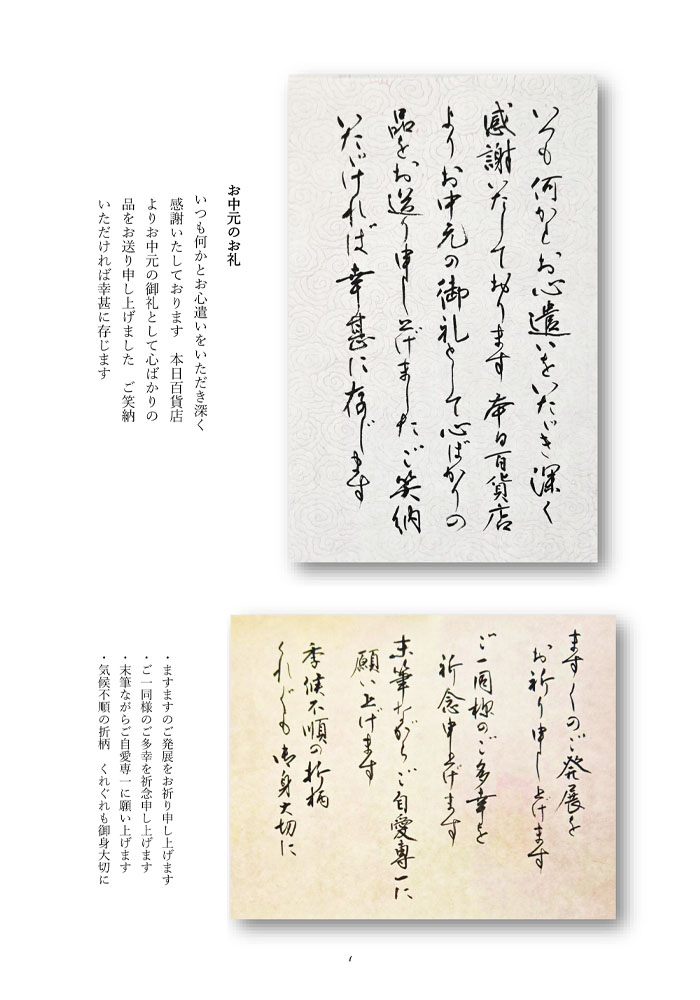 いつも何かとお心遣いをいただき深く
感謝いたしております 本日百貨店
よりお中元の御礼として心ばかりの
品をお送り申し上げましたご笑納
いただければ幸甚に存じます
お中元のお礼
いつも何かとお心遣いをいただき深く
感謝いたしております　本日百貨店
よりお中元の御礼として心ばかりの
品をお送り申し上げました　ご笑納
いただければ幸甚に存じます
ます〱のご発展を
お祈り申し上げます
ご一同様のご多幸を
祈念申上げます
末筆ながらご自愛専一に
願い上げます
季候不順の折柄
くれ〲も御身大切に
・ますますのご発展をお祈り申し上げます
・ご一同様のご多幸を祈念申し上げます
・末筆ながらご自愛専一に願い上げます
・気候不順の折柄　くれぐれも御身大切に